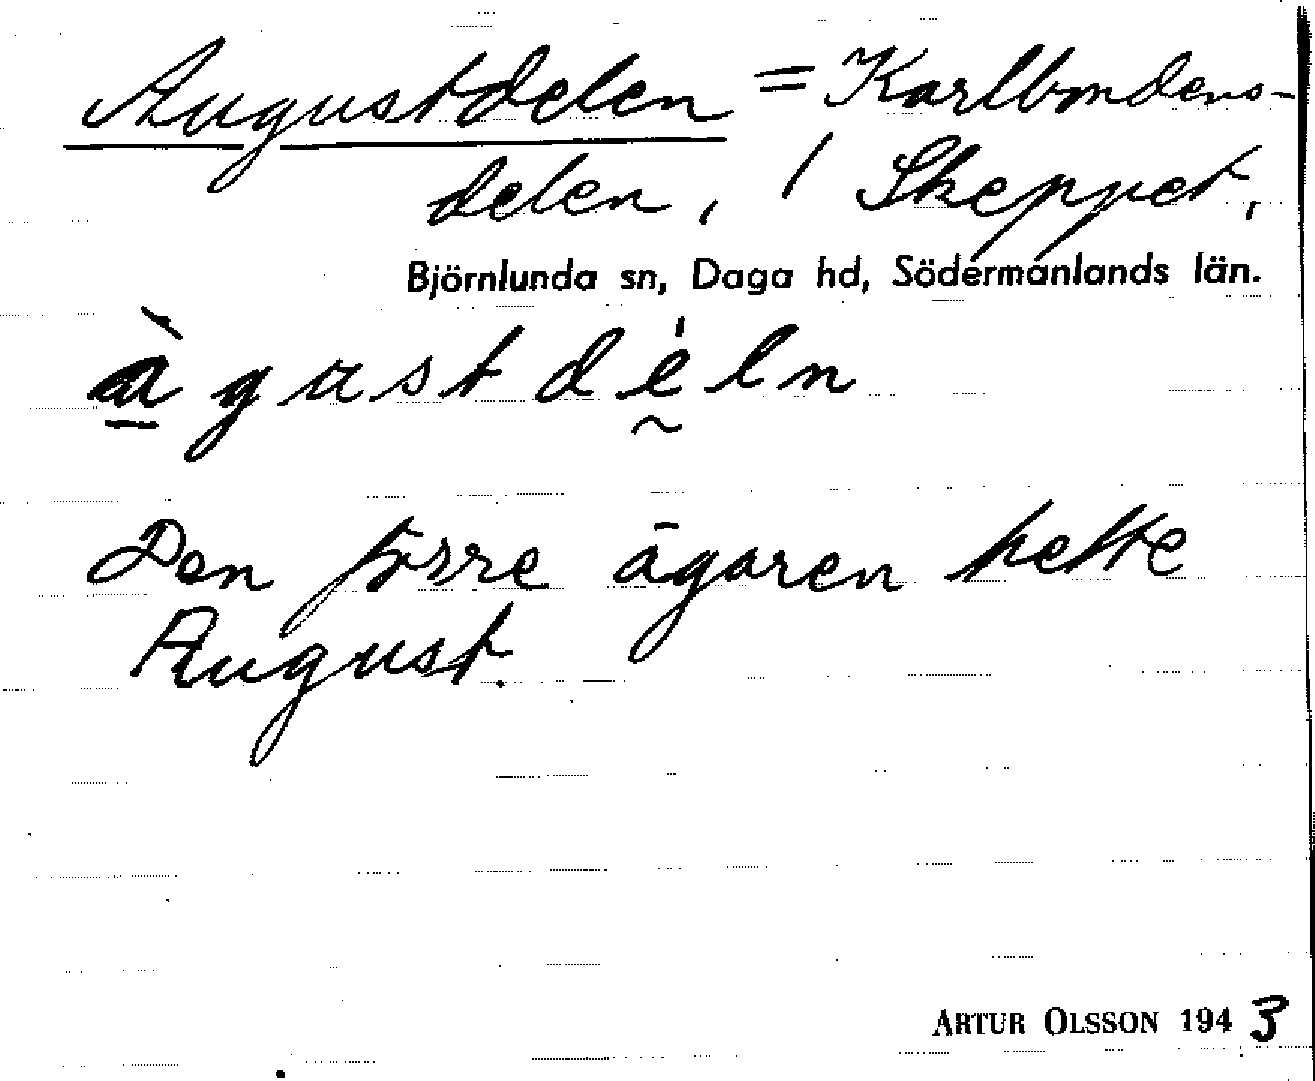 Augustdelen = Karlbondens-
delen, / Skeppet,
Björnlunda sn, Daga hd, Södermanlands län.
àgustdéln
Den förre ägaren hette
August.
ARTUR OLSSON 1943